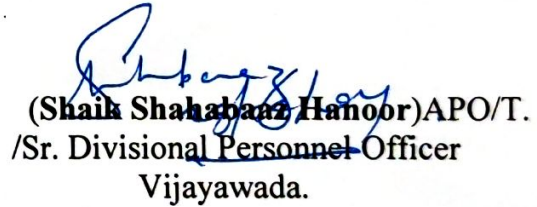 (Shaik Shahabaaz Hanoor)APO/T.
/Sr. Divisional Personnel Officer
Vijayawada.